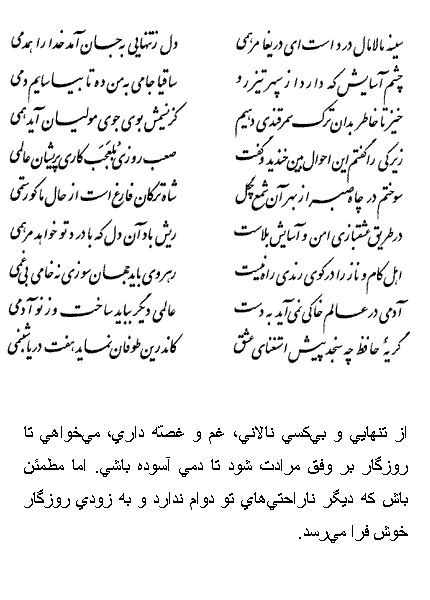 سینه مالامال درد است ای دریغا مرهمی دل ز تنهایی به جان آمد خدا را همدمی
چشم آسایش که دارد از سپهر تیزرو ساقیا جامی به من ده تا بیاسایم دمی
خیز تا خاطر بدان ترک سمرقندی دهیم کز نسیمش بوی جوی مولیان آید همی
زیرکی را گفتم این احوال بین خندید و گفت صعب روزی بلعجب کاری پریشان عالمی
سوختم در چاه صبر از بهر آن شمع چگل شاه ترکان فارغ است از حال ما کو رستمی
در طریق عشقبازی امن و آسایش بلاست ریش باد آن دل که با درد تو خواهد مرهمی
اهل کام و ناز را در کوی رندی راه نیست رهروی باید جهان سوزی نه خامی بی‌غمی
آدمی در عالم خاکی نمی‌آید به دست عالمی دیگر بباید ساخت وز نو آدمی
گریهٔ حافظ چه سنجد پیش استغنای عشق کاندرین طوفان نماید هفت دریا شبنمی
از تنهايي و بي‌كسي نالاني، غم و غصّه داري، مي‌خواهي تا
روزگار بر وفق مرادت شود تا دمي آسوده باشي. اما مطمئن
باش كه ديگر ناراحتي‌هاي تو دوام ندارد و به زودي روزگار
خوش فرا مي‌رسد.